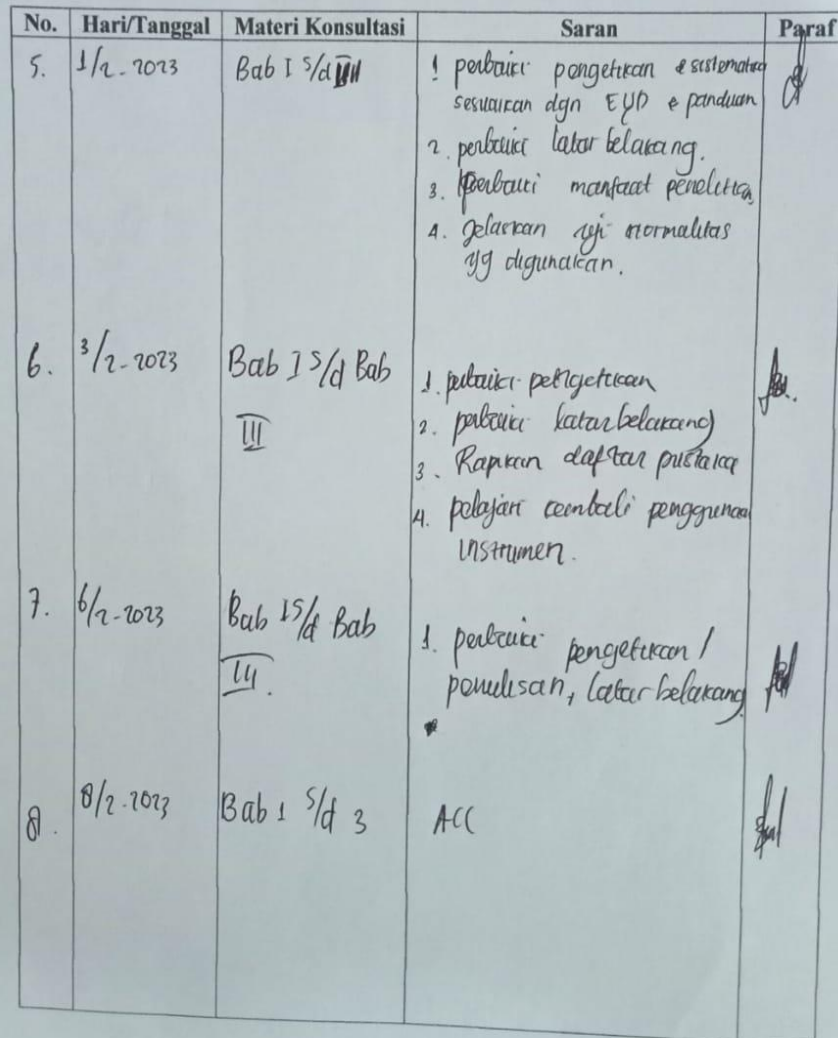 No. Hari/Tanggal Materi Konsultasi Saran Paraf
5. 1/2-2023 Bab I S/d III 1 perbaiki pengetikan & sistematika
sesuaikan dgn EYD & panduan
2. perbaiki latar belakang.
3. Perbaiki manfaat penelitian
4. Jelaskan uji normalitas
yg digunakan.
6. 3/2-2023 Bab I S/d Bab 1. perbaiki pengetikan
III 2. perbaiki latar belakang
3. Rapikan daftar pustaka
4. pelajari kembali penggunaan
instrumen.
7. 6/2-2023 Bab I S/d Bab 1. perbaiki pengetikan /
III. penulisan, latar belakang
8. 8/2-2023 Bab 1 S/d 3 ACC